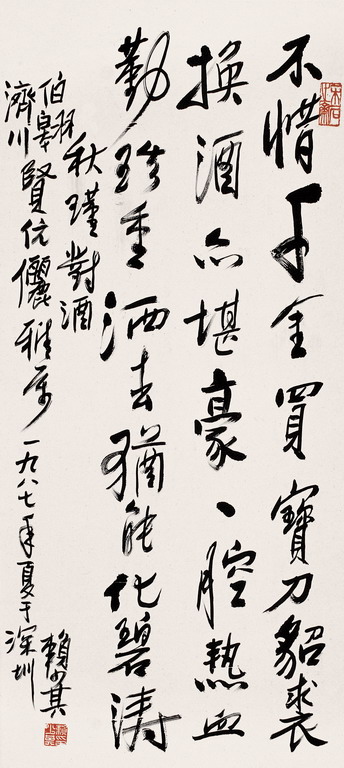 不惜千金買寶刀貂裘
換酒亦堪豪一腔熱血
勤珍重洒去猶能化碧濤
秋瑾對酒
伯
濟川賢伉儷雅屬一九八七年夏于深圳
賴少其